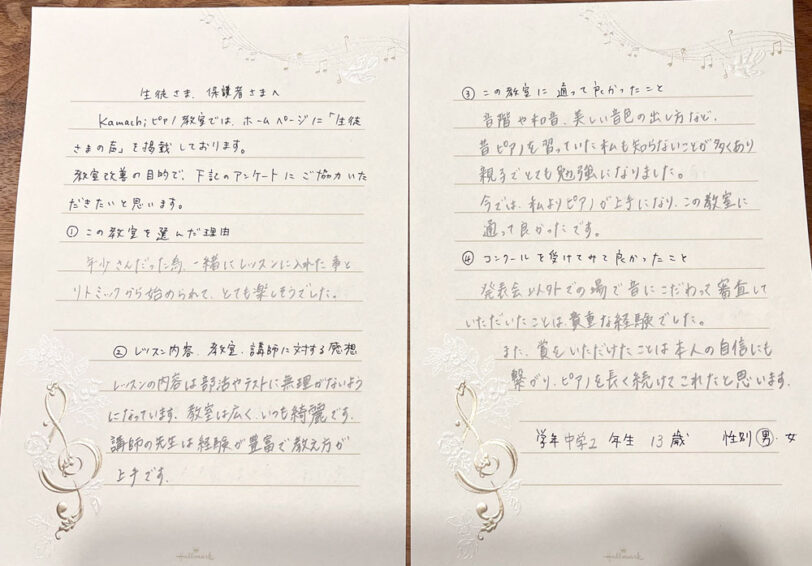 生徒さま、保護者さまへ
Kamachiピアノ教室では、ホームページに「生徒
さまの声」を掲載しております。
教室改善の目的で、下記のアンケートにご協力いた
だきたいと思います。
① この教室を選んだ理由
年少さんだった為、一緒にレッスンに入れた事と
リトミックから始められて、とても楽しそうでした。
② レッスン内容、教室、講師に対する感想
レッスンの内容は部活やテストに無理がないよう
になっています。教室は広く、いつも綺麗です。
講師の先生は経験が豊富で教え方が
上手です。
Hallmark
③ この教室に通って良かったこと
音階や和音、美しい音色の出し方など、
昔ピアノを習っていた私も知らないことが多くあり
親子でとても勉強になりました。
今では、私よりピアノが上手になり、この教室に
通って良かったです。
④ コンクールを受けてみて良かったこと
発表会以外での場で音にこだわって審査して
いただいたことは貴重な経験でした。
また、賞をいただけたことは本人の自信にも
繋がり、ピアノを長く続けてこれたと思います。
学年 中学2 年生 13 歳 性別 男・女
Hallmark